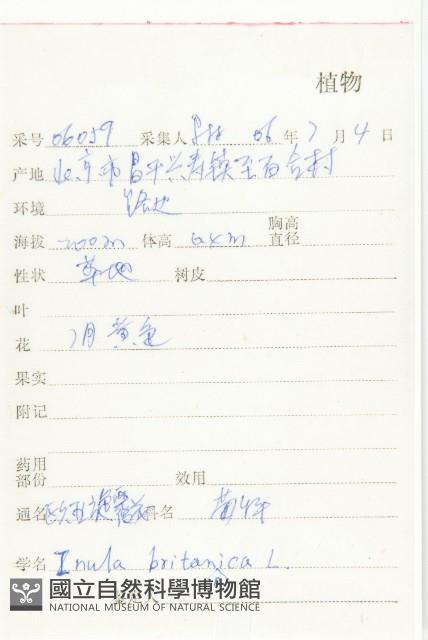 植物
采号 06059 采集人 06 年 7 月 4 日
产地 北京市昌平兴寿镇至百合村
环境 路边
胸高
海拔 200m 体高 直径
性状 草地 树皮
叶
花 7月 黄色
果实
附记
药用
部份 效用
通名 欧亚旋覆花 科名 菊科
学名 Inula britanica L.
國立自然科學博物館
NATIONAL MUSEUM OF NATURAL SCIENCE